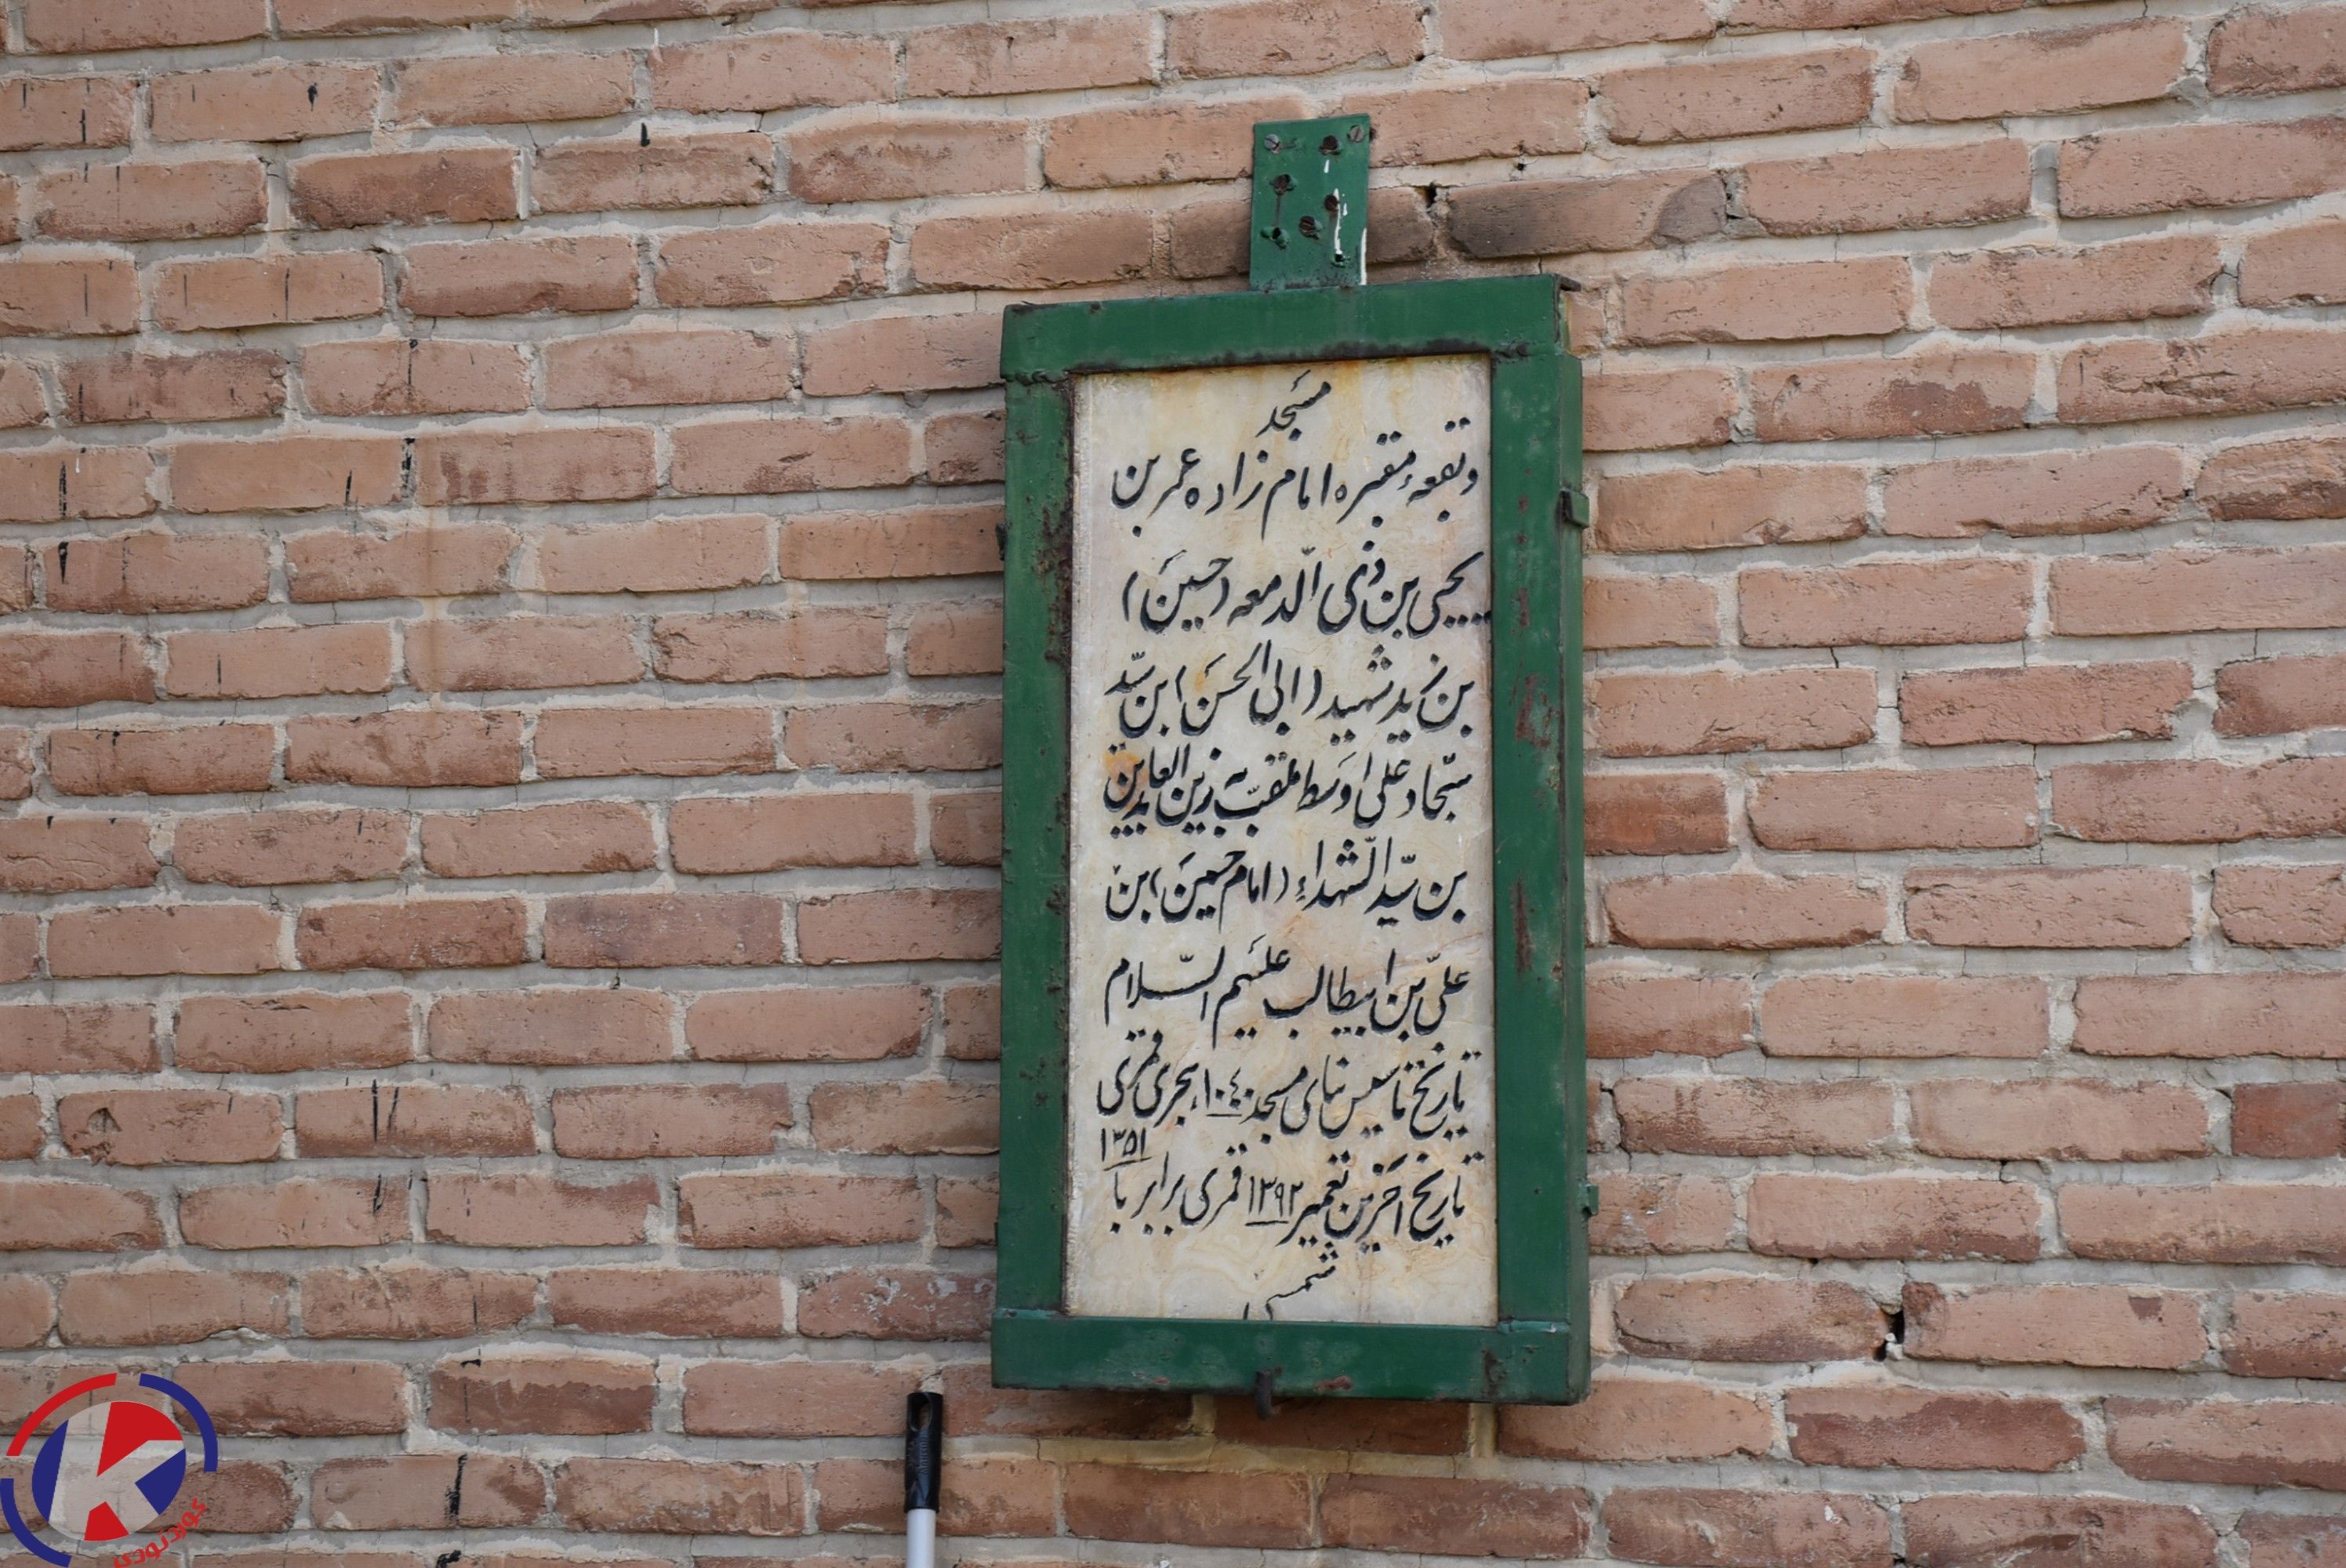 مسجد
و بقعهٔ مقبره امام زاده عمر بن
یحیی بن ذی الدّمعه (حسین)
بن زید شهید (ابی الحسن) بن سیّد
سجّاد علی اوسط ملقّب به زین العابدین
بن سیّد الشّهداء (امام حسین) بن
علیّ بن ابیطالب علیهم السّلام
تاریخ تاسیس بنای مسجد ۱۰۴۰ هجری قمری
تاریخ آخرین تعمیر ۱۳۹۲ قمری برابر با ۱۳۵۱
شمسی
کوردنودی